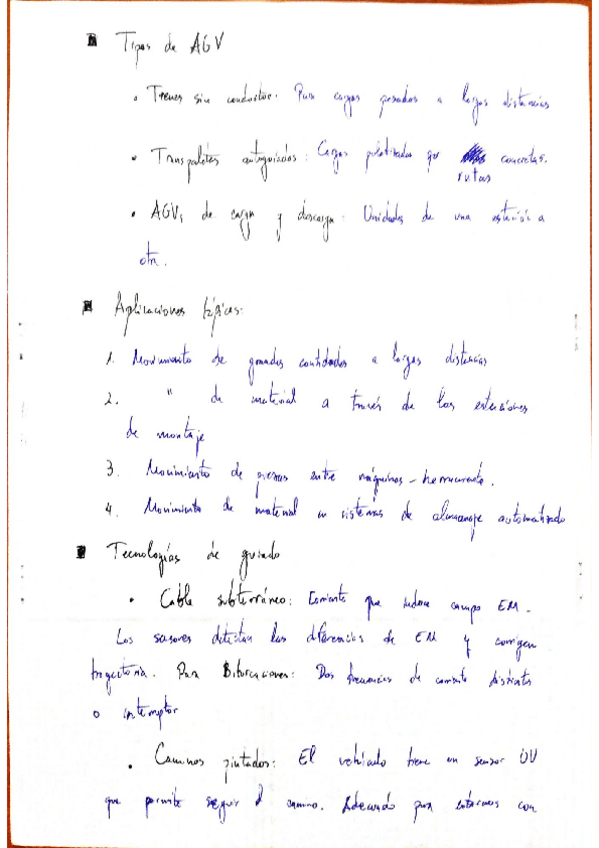 Tipos de AGV
• Trenes sin conductor. Para cargas pesadas a largas distancias
• Transpaletas autoguiados: Cargas paletizadas por concretas.
rutas
• AGVs de carga y descarga: Unidades de una estación a
otra.
Aplicaciones típicas:
1. Movimiento de grandes cantidades a largas distancias
2. " de material a través de las estaciones
de montaje
3. Movimiento de piezas entre máquinas-herramienta.
4. Movimiento de material en sistemas de almacenaje automatizado
Tecnologías de guiado
• Cable subterráneo: Corriente que induce campo EM.
Los sensores detectan las diferencias de EM y corrigen
trayectoria. Para Bifurcaciones: Dos frecuencias de corriente distintas
o interruptor
• Caminos pintados: El vehículo tiene un sensor UV
que permite seguir el camino. Adecuado para entornos con